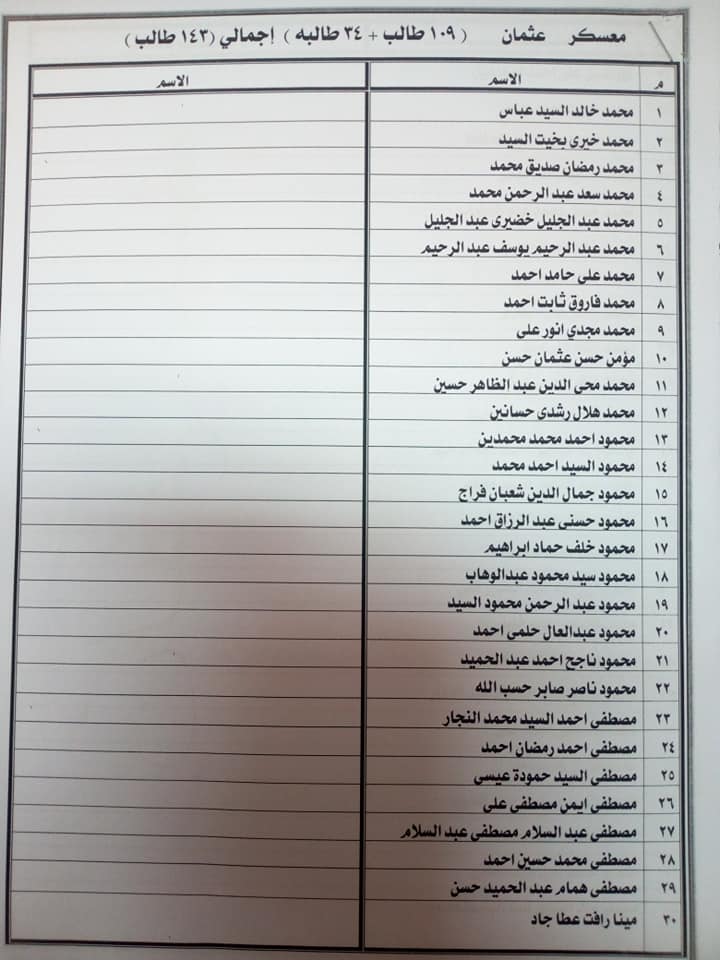 معسكر عثمان ( ١٠٩ طالب + ٣٤ طالبه ) إجمالي (١٤٣ طالب )
م الاسم الاسم
١ محمد خالد السيد عباس
٢ محمد خيرى بخيت السيد
٣ محمد رمضان صديق محمد
٤ محمد سعد عبد الرحمن محمد
٥ محمد عبد الجليل خضيرى عبد الجليل
٦ محمد عبد الرحيم يوسف عبد الرحيم
٧ محمد على حامد احمد
٨ محمد فاروق ثابت احمد
٩ محمد مجدي انور على
١٠ مؤمن حسن عثمان حسن
١١ محمد محى الدين عبد الظاهر حسين
١٢ محمد هلال رشدى حسانين
١٣ محمود احمد محمد محمدين
١٤ محمود السيد احمد محمد
١٥ محمود جمال الدين شعبان فراج
١٦ محمود حسنى عبد الرزاق احمد
١٧ محمود خلف حماد ابراهيم
١٨ محمود سيد محمود عبدالوهاب
١٩ محمود عبد الرحمن محمود السيد
٢٠ محمود عبدالعال حلمى احمد
٢١ محمود ناجح احمد عبد الحميد
٢٢ محمود ناصر صابر حسب الله
٢٣ مصطفى احمد السيد محمد النجار
٢٤ مصطفى احمد رمضان احمد
٢٥ مصطفى السيد حمودة عيسى
٢٦ مصطفى ايمن مصطفى على
٢٧ مصطفى عبد السلام مصطفى عبد السلام
٢٨ مصطفى محمد حسين احمد
٢٩ مصطفى همام عبد الحميد حسن
٣٠ مينا رافت عطا جاد